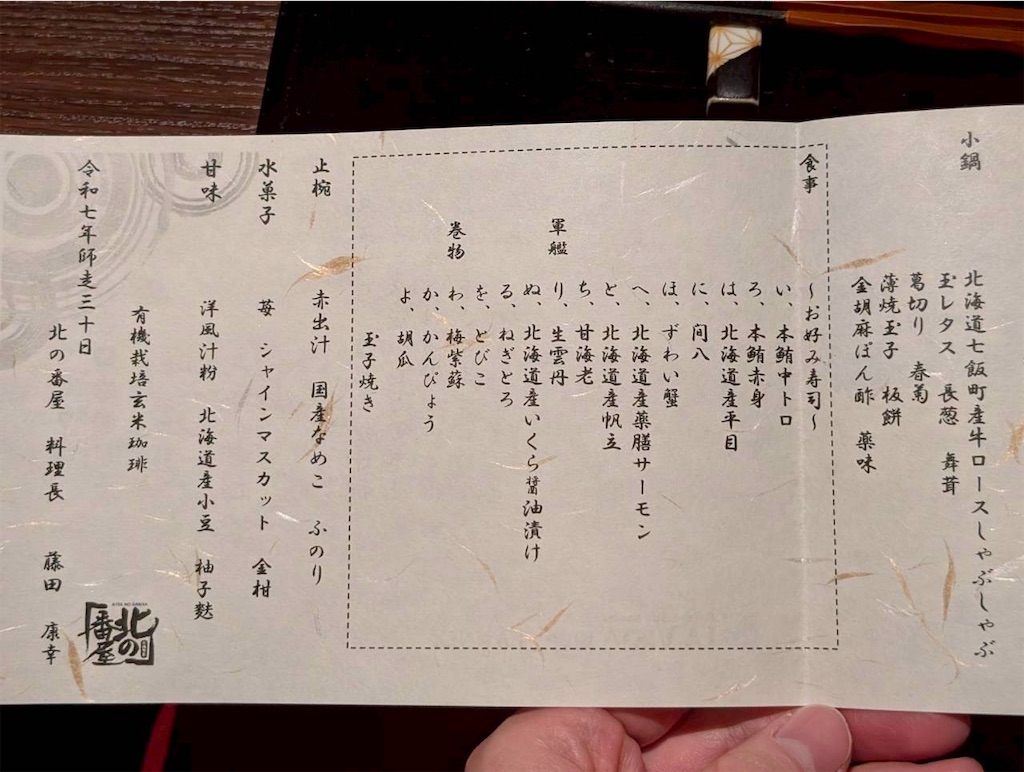 小鍋
北海道七飯町産牛ロースしゃぶしゃぶ
玉レタス 長葱 舞茸
葛切り 春菊
薄焼玉子 板餅
金胡麻ぽん酢 薬味
食事
～お好み寿司～
い、本鮪中トロ
ろ、本鮪赤身
は、北海道産平目
に、間八
ほ、ずわい蟹
へ、北海道産薬膳サーモン
と、北海道産帆立
ち、甘海老
軍艦
り、生雲丹
ぬ、北海道産いくら醤油漬け
る、ねぎとろ
を、とびこ
巻物
わ、梅紫蘇
か、かんぴょう
よ、胡瓜
玉子焼き
止椀 赤出汁 国産なめこ ふのり
水菓子 苺 シャインマスカット 金柑
甘味 洋風汁粉 北海道産小豆 柚子麩
有機栽培玄米珈琲
令和七年師走三十日
北の番屋 料理長 藤田 康幸
北の番屋